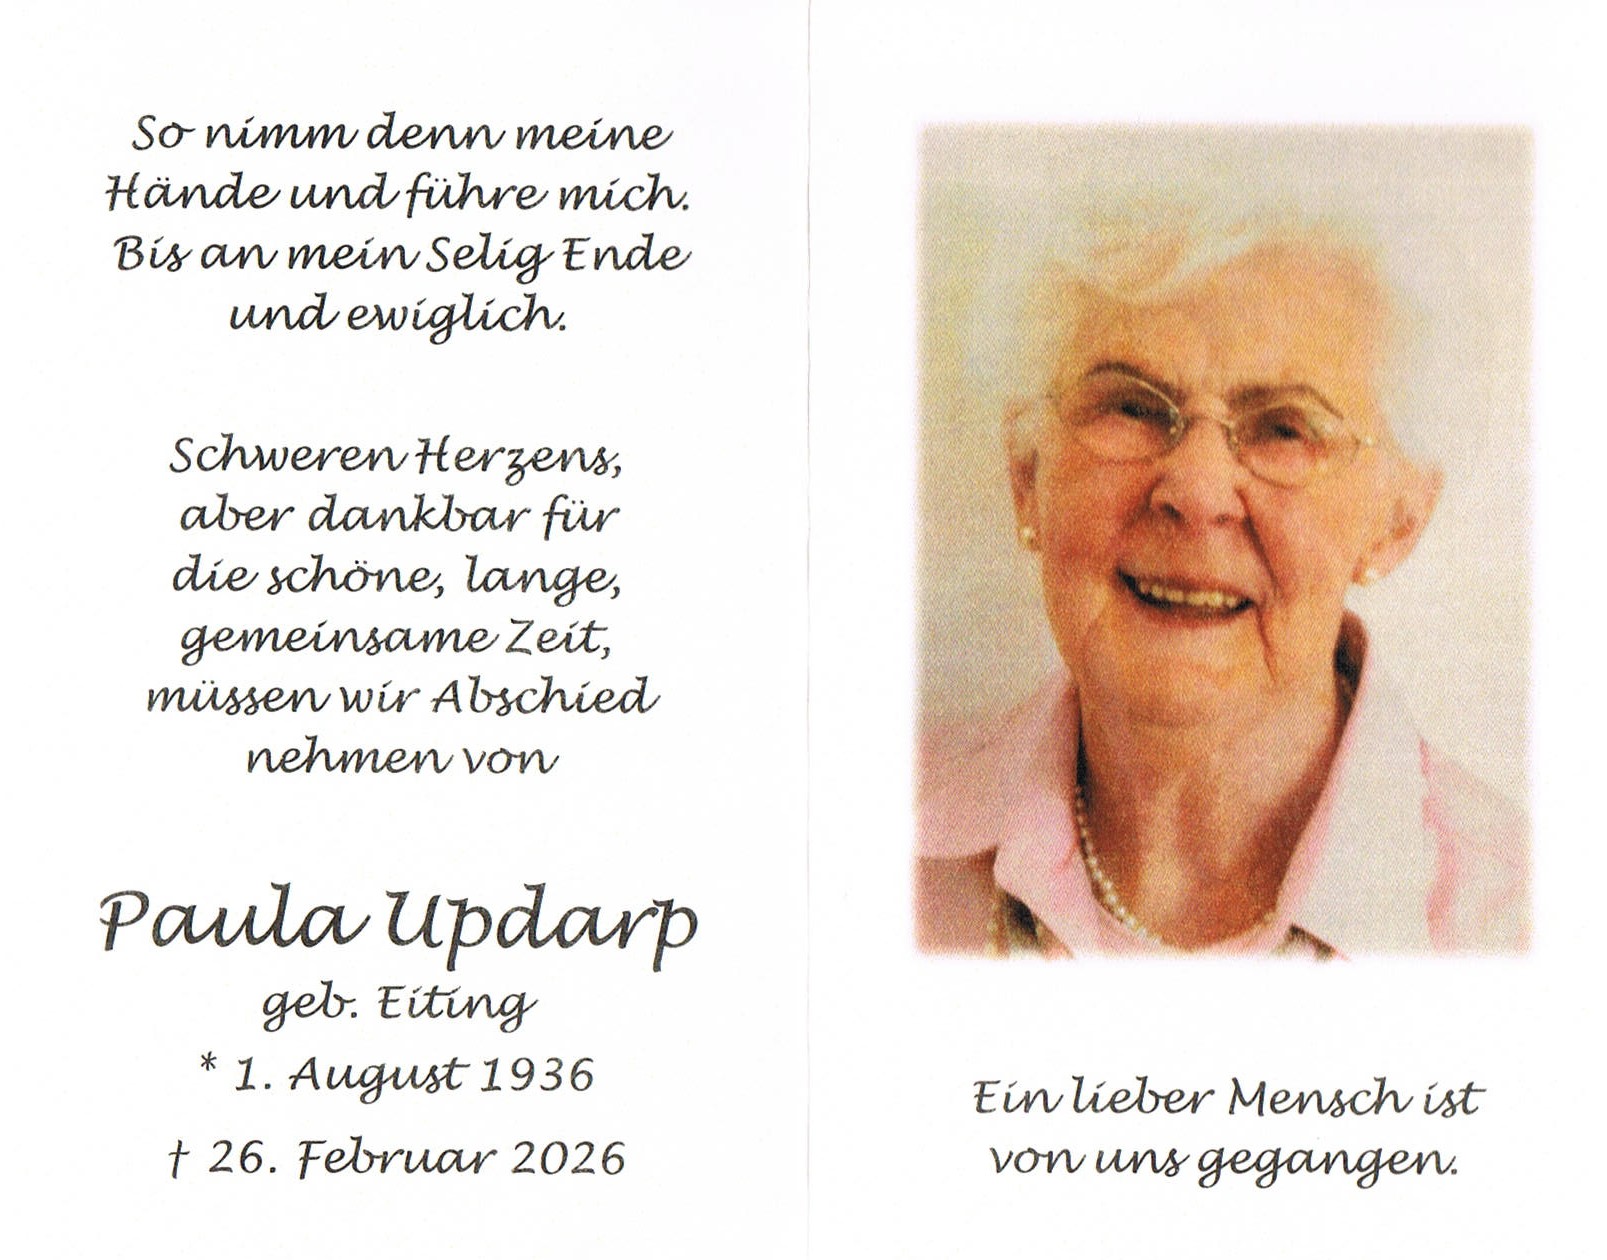 So nimm denn meine
Hände und führe mich.
Bis an mein Selig Ende
und ewiglich.
Schweren Herzens,
aber dankbar für
die schöne, lange,
gemeinsame Zeit,
müssen wir Abschied
nehmen von
Paula Updarp
geb. Eiting
* 1. August 1936
† 26. Februar 2026
Ein lieber Mensch ist
von uns gegangen.